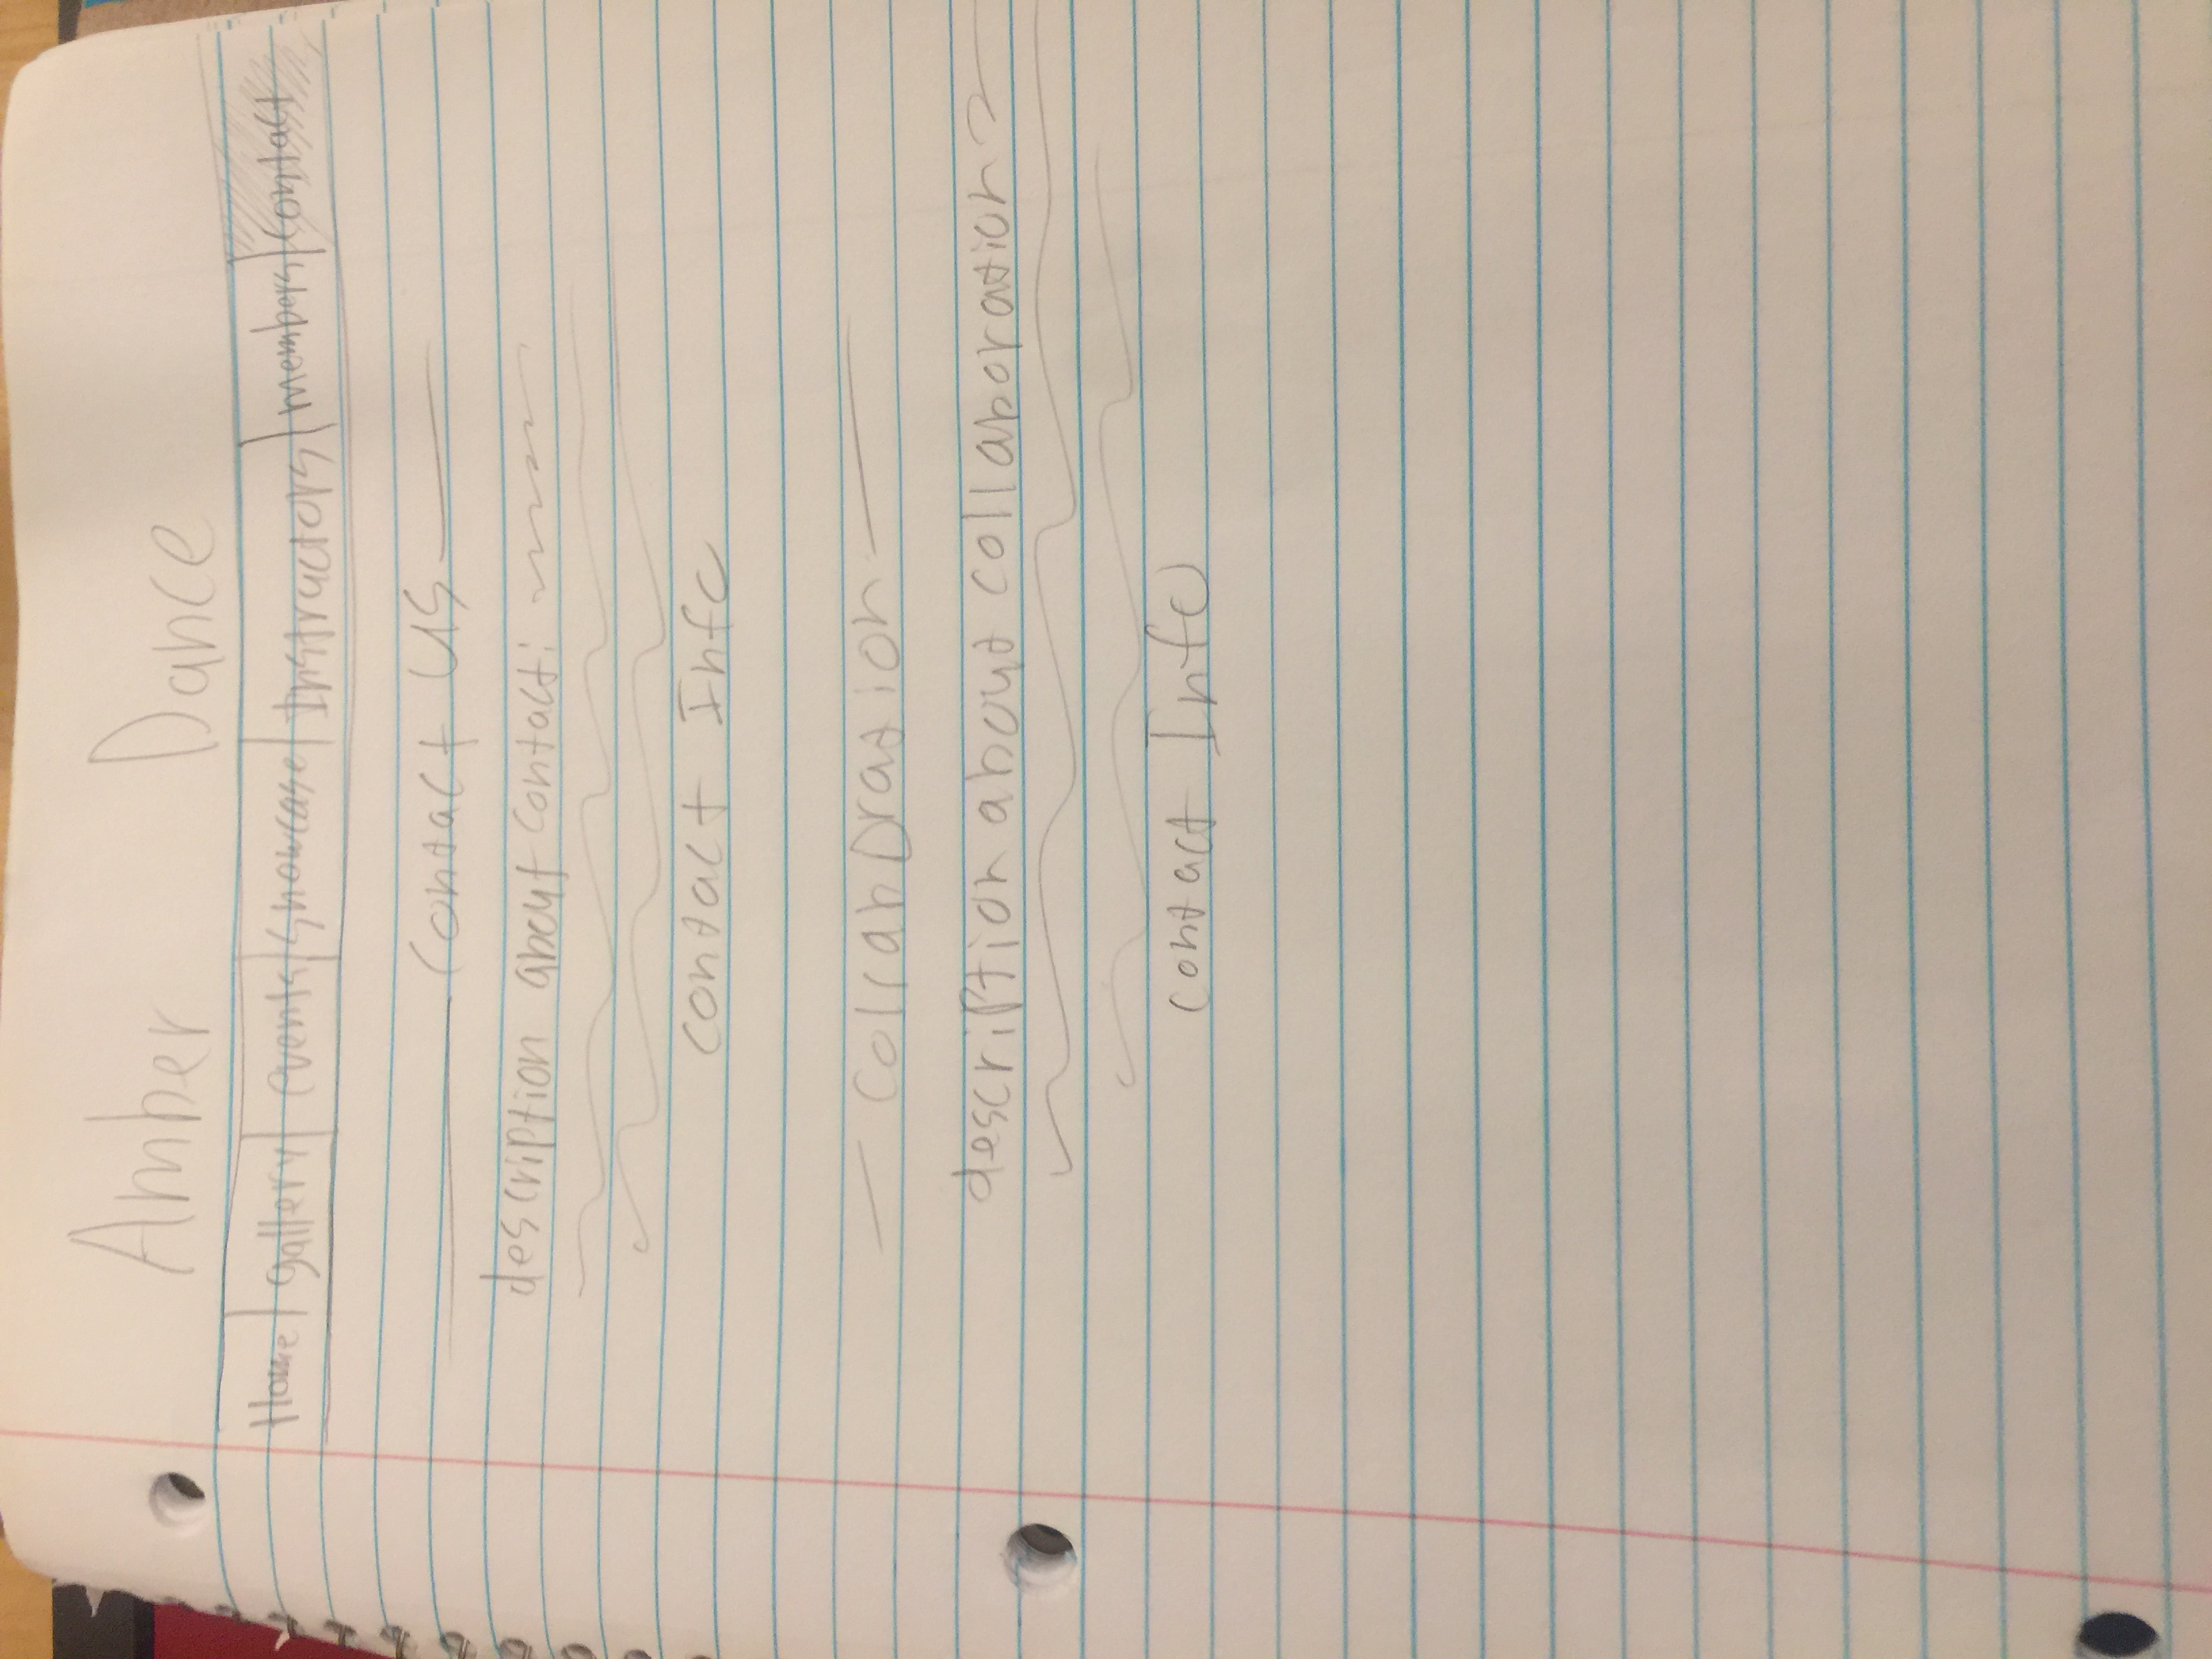 Amber Dance
Home gallery events showcase Instructors members contact
contact US
description about contact:
contact Info
collaboration
description about collaboration
contact Info